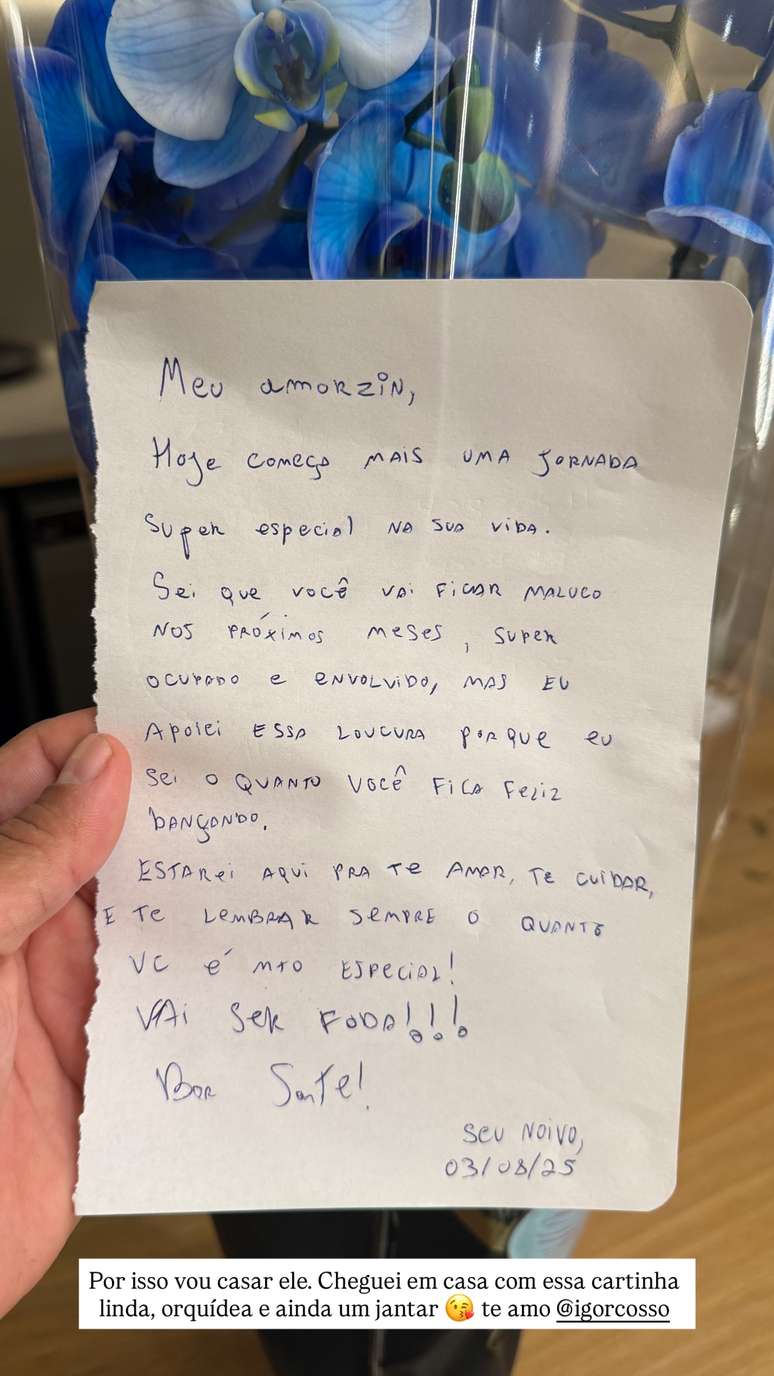 Meu amorzin,
Hoje começa mais uma jornada
super especial na sua vida.
Sei que você vai ficar maluco
nos próximos meses, super
ocupado e envolvido, mas eu
apoiei essa loucura porque eu
sei o quanto você fica feliz
dançando.
Estarei aqui pra te amar, te cuidar,
e te lembrar sempre o quanto
vc é mto especial!
Vai ser foda!!!
Boa Sorte!
Seu noivo,
03/08/25
Por isso vou casar ele. Cheguei em casa com essa cartinha
linda, orquídea e ainda um jantar 😘 te amo @igorcosso